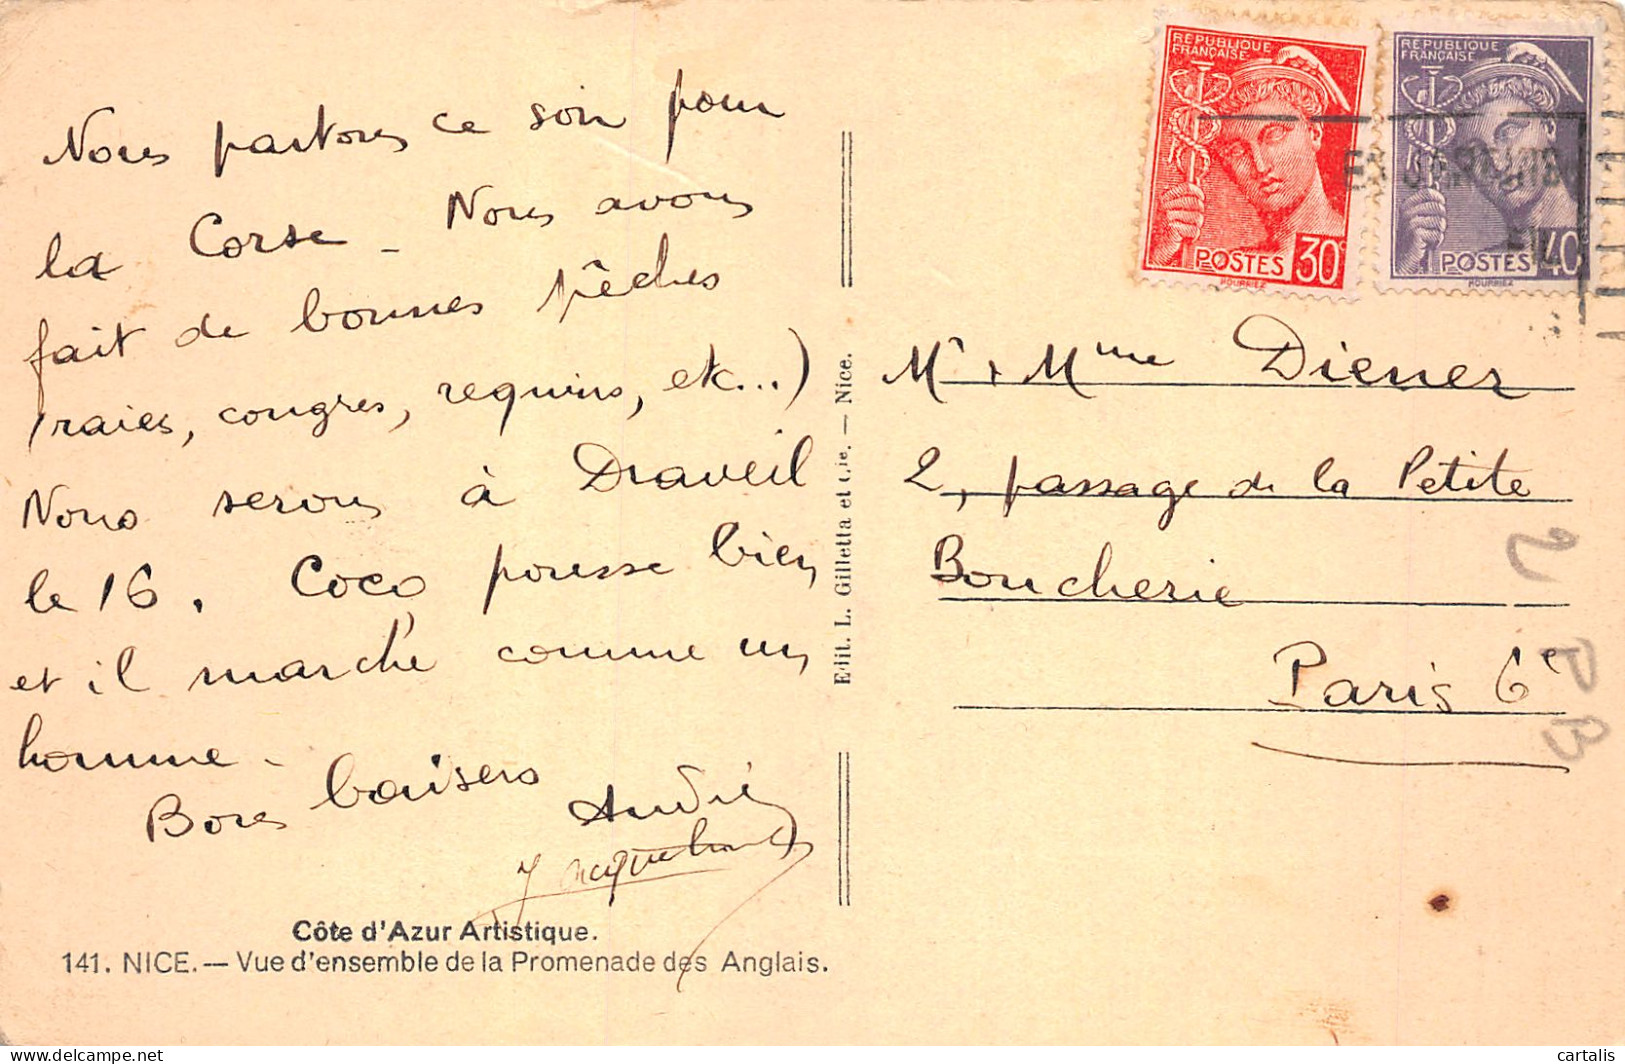 Nous partons ce soir pour
la Corse - Nous avons
fait de bonnes pêches
(raies, congres, requins, etc...)
Nous serons à Draveil
le 16. Coco pousse bien
et il marche comme un
homme -
Bons baisers
André
Jacqueline
Côte d'Azur Artistique.
141. NICE. — Vue d'ensemble de la Promenade des Anglais.
Edit. L. Gilletta et Cie. — Nice.
RÉPUBLIQUE
FRANÇAISE
POSTES 30c
HOURRIEZ
RÉPUBLIQUE
FRANÇAISE
POSTES 40c
HOURRIEZ
Mr & Mme Diener
2, passage de la Petite
Boucherie
Paris 6e
2
P
B
cartalis.com
cartalis